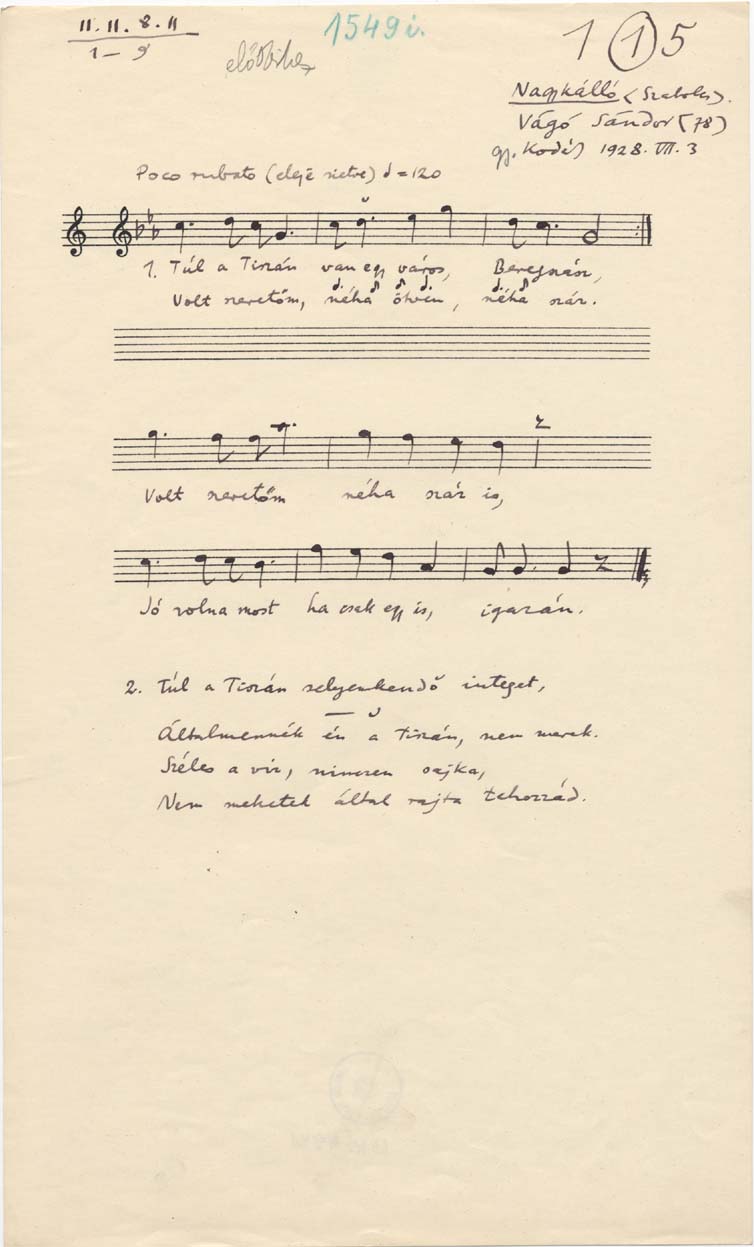 11. 11. 8. 11
1 - 9
1549 i.
1 1 5
Nagykálló (Szabolcs).
Vágó Sándor (78)
gy. Kodály 1928. VII. 3
Poco rubato (eleje sietve) = 120
1. Túl a Tiszán van egy város, Beregszász,
Volt szeretőm, néha ötven, néha száz.
Volt szeretőm néha száz is,
Jó volna most ha csak egy is, igazán.
2. Túl a Tiszán selyemkendő integet,
Általmennék én a Tiszán, nem merek.
Széles a víz, nincsen sajka,
Nem mehetek által rajta tehozzád.